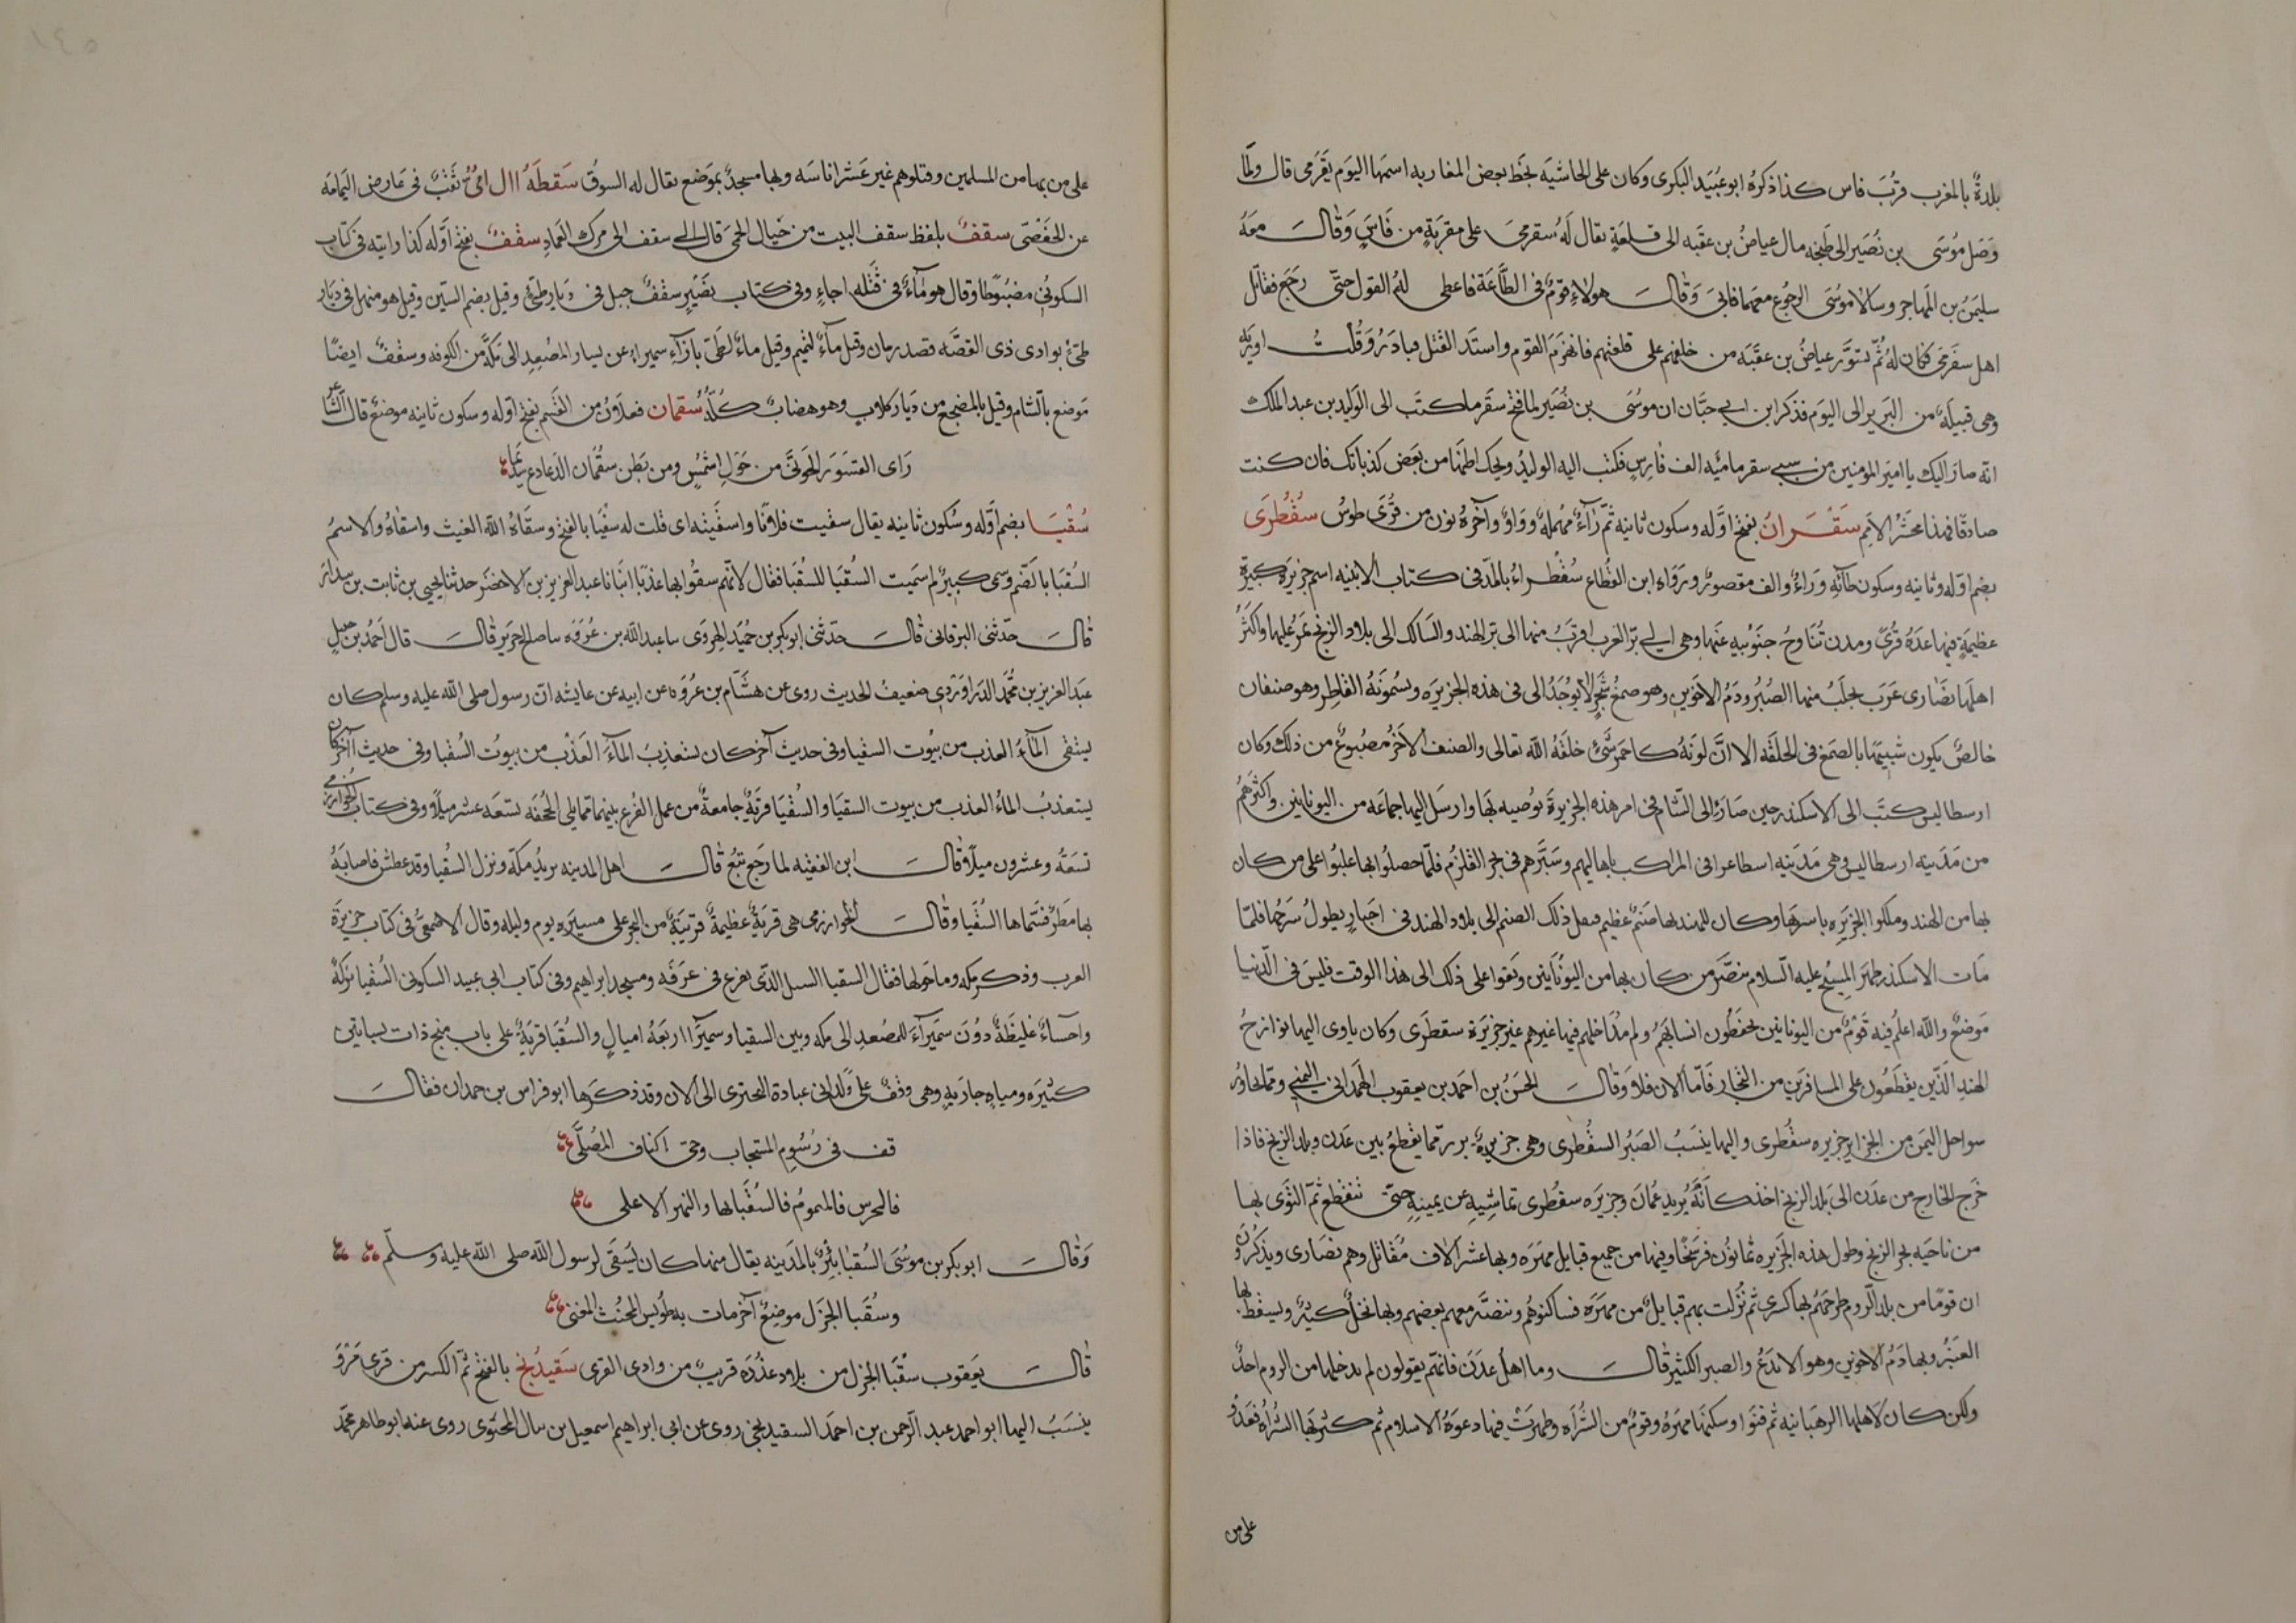 بلدةٌ بالمغرب قربَ فاس كذا ذكرهُ ابو عُبَيَد البكرى وكان على الحاشيَه بخَط بعض المغاربه اسمها اليوَم يقَرَمى قال ولمّا
وَصَل موُسَى بن نُصَير الى طَنجه مال عياضُ بن عقبَه الى قلعَةٍ يقال لهُ سقرمى على مقربَةٍ من فاَسٍ وَقالَ معَهُ
سليمَنُ بن المهاجر وسالا موُسَى الرجُوع معهما فابىَ وَقالَ هولاءِ قومٌ فى الطَّاعَة فاعطى لهُ القول حتّى رجَع فقاتل
اهل سقرَمى فكان لهُ ثُمّ تسَوَّر عياضُ بن عقَبَه من خلفهم على قلعتهم فانهَزمَ القوم واستَد القتل فبادَرُ وَقُلتُ اوربَه
وهى قبيلَهٌ من البَربر الى اليوَم فذكر ابن ابي حبَّان ان موُسَى بن نُصَير لما فتح سقَرما كتَب الى الوَليد بن عبد الملك
انّه صارَ اليك يا اميرَ المومنين من سبي سقرما ميَه الف فارِسٍ فكتب اليه الوليدُ ويحك اظنها من بَعَض كذباتك فان كنت
صادقًا فهذا محشَرُ الامَم سَقْرَانُ بفتح اوَّله وسكون ثانيه ثمّ راَءٌ مهُملهٌ وواوٌ وآخرهُ نون من قُرَى طوسُ سُقُطرَى
بضم اوّله وثانيه وسكون طائه وَراءٌ والف مقصورٌ ورَوَاه ابن القطّاع سُقُطراءُ بالمدّ فى كتاب الابنيه اسم جزيرَة كبيرَةٍ
عظيمَةٍ فيها عدَهُ قُرىً ومدن تُنَاوحُ جنوُبيه عنَها وهى الي برّ العَرب اقربَُ منها الى برّ الهند والسالك الى بلاد الزنج يمَرُّ عليها واكثرُ
اهلَها نصَارى عَرَب يجلَبُ منها الصُبُر ودَمُ الاخَوين وهو صمغُ شجَرٍ لا يوُجَدُ الى فى هذه الجزيرَه ويسُموُنهُ القاطِر وهو صنفان
خالصٌ يكون شبيهًا بالصَمغ فى الخلقَه الا انَّ لوَنهُ كاحمر شَىءٍ خلقَهُ الله تعالى والصنف الاخرُ مصُبوغٌ من ذلك وكان
ارسطاليس كتَب الى الاسكندر حين صَارَ الى الشّام فى امر هذه الجزيرَةَ يوُصيه بهَا وارسَل اليها جماعَه من اليونانين واكثرَهمُ
من مَدَينه ارسطاليس وهى مَدَينه اسطاعرا فى المراكب باهاليهم وسَيَّرهم فى بحر القلزُم فلمّا حصلُوا بها غلبوُا على من كان
بها من الهند وملكوا الجزيَره باسرهَا وكان للهند بها صَنَمٌ عظيم فنقل ذلك الصنم الى بلاد الهند فى اخبارٍ يطولُ شرَحُها فلمّا
مَات الاسكندر وظهرَ المسِيُح عليه السّلام تنصَّر من كان بها من اليوُناَنين وبَقوا على ذلك الى هذا الوقت فليسَ فى الدّنيا
مَوضعٌ والله اعلمُ فيه قَوْمٌ من اليونانين يحفظُون انسابهَمُ ولم يدُاخلهم فيها غيرهم غير جزيرَة سقطرَى وكان ياوى اليها بوارجُ
الهند الذَين يقْطَعُون على المسافرَين من التجار فاَمّا الان فلا وَقالَ الحسَنُ بن احمَد بن يعقوب الهمَدانى اليمنىُ وممّا يحاورُ
سواحل اليمَن من الجزاير جزيره سقُطرى واليها ينسَبُ الصَبرُ السقُطرى وهى جزيرةُ بربر ممّا يقْطعُ بين عَدَن وبلد الزنج فاذا
خَرج الخارج من عدَن الى بَلد الزنج اخذ كاَنّهُ يُريد عمُانَ وجزيرَه سقُطرى تماشِيهِ عن يمينِهِ حتىّ تنقطع ثمّ التَوى بها
من ناحَيه بحر الزنج وطول هذه الجَزيره ثمانوُن فرسَخًا وفيها من جميع قبايل مهَرَه وبها عشر الاف مُقاتل وهم نصَارى ويذكرُون
ان قومًا من بلد الرّوم طرحَهُم بها كسرى ثم نُزلت بهم قبايلُ من مهَرَه فساكنوُهم وتنصَّر معهم بعضهم وبها نخلٌ كثيرٌ ويسقطُ بها
العنَبرُ وبها دَمُ الاخوين وهو الايدَعُ والصبر الكثير قالَ واما اهل عَدَن فانّهم يقولون لم يدخلها من الروم احدٌ
ولكن كان لاهلها الرهبَانيه ثم فنَوَا وسكنهَا مهرَهُ وقومٌ من الشُرَاه وظهرَتْ فيها دعوَهُ الاسلام ثم كثر بَها الشراهُ فعَدَوُا
على من
على من بها من المسلمين وقتلوهم غير عَشر اناسَه وبها مسجدٌ بموَضع يقال له السوقُ سَقطَهُ نقَبٌ فى عَارض اليمامَه
عن الحَفصَّى سقفٌ بلفظ سقف البيت من خيال الحمى قال الى سقف الى مرك العمَاد سقفٌ بفتح اوَّله كذا رايته فى كتاب
السكونىُ مضبُوطًا وقال هو مآءٌ فى قبْله اجاءٍ وفى كتاب نضَرٍ سقفٌ جبل فى ديار طىّءٍ وقيل بضم السيّن وقيل هو منهل فى ديَار
طىّءٍ بوادى ذى القصَّه قصد رمان وقيل مآءٌ لتميم وقيل ماءٌ لطَىّ بازآءِ سميراءُ عن يسار المصُعد الى مكَّةَ من الكوفه وسقفٌ ايضًا
مَوضع بالشام وقيل بالمضجع من ديَار كلابٍ وهو هضابٌ كُلُّهُ سُقمان فعلانُ من السَّقم بفتح اوله وسكون ثانيه موضعٌ قال الشّاعرُ
رَاى القسَوَر الجَونىَّ من حَوَلِ اشمُسٍ ومن بَطن سقُمان الدعادع سديَما
سُقْيَا بضم اوّله وسُكون ثانيه يقال سقيت فلانًا واسقَيته اى قلت له سقُيَا بالفتح وسقَاهُ الله الغيث واسقاهُ والاسمُ
السُقيَا بالضَم وسَمى كبيرٌ لم سميَت السُقيَا للسُقيَا فقال لانهّم سقُوا بها عَذبًا انبانا عبد العزيز بن الاخضَر حدثنا يحيى بن ثابت بن بندارَ
قالَ حدّثنى البرقانى قالَ حدّثنى ابو بكر بن حمُيد الهروَى سا عبد الله بن عُروَه سا صلح بن حَريَر قالَ قال احَمدُ بن حنبل
عبَد العزيز بن محُمَّد الدَرَاوَردىُ ضعيفُ الحديث روى عن هشَّام بن عُروَه عن ابيه عن عايشه انّ رسول صلى الله عليه وسلم كان
يسَتقى المآَءَ العذب من بيُوت السقيا وفى حديث آخرَ كان يستعَذبُ المآءَ العَذْب من بيوُت السُقيا وفى حديث آخر كان
يستعذبُ الماءُ العذب من بيوت السقيَا والسُقيَا قريَهٌ جامعةٌ من عمل الفُرع بينهما ممّا يلى الجُحفَه تسعَه عشر ميلاً وفى كتاب الخوارزمى
تسَعَةُ وعشرون ميلاً وقالَ ابن الفقيه لما رجَع تبُع قالَ اهل المدينه يريُد مكّة ونزل السُقيا وقد عطش فاصابَهُ
بها مَطَرٌ فسَمّاها السُقيَا وقالَ الخوارزمى هى قريَةٌ عظيمةٌ قريبَةٌ من البحر على مسيَره يوم وليله وقال الاصمعىُّ فى كتاب جزيرَة
العرب وذكر مكه وما حَولها فقال السقيا السيل الذَى يفرع فى عرَفَه ومسجد ابراهيم وفى كتاب ابى عبيد السكونى السُقيا بركَهٌ
واحسآءٌ غليظَهٌ دوُنَ سميَرآءَ للمصُعدِ الى مكه وبين السقيا وسميَرآا اربَعَهُ اميالٍ والسُقيَا قريَهٌ على باب منبج ذات بساتين
كثيَره ومياهٍ جاريَهٍ وهى وقفٌ على وَلد ابى عبادة البحترى الى الآن وقد ذكرَها ابو فراس بن حمدان فقالَ
قف فى رُسُومِ المستجاب وحىّ اكناف المصُلَّى
فالجرس فالميموُم فالسُقيَا بها والنهر الاعلى
وَقالَ ابو بكر بن موُسَى السُقيا بئِرٌ بالمدَينه يقال منها كان يسَتقَى لرسول الله صلى الله عليه وسلّم
وسُقيَا الجَزَل موضعٌ آخر مات به طوُيس المخنُث المغنى
قالَ يعَقوب سقُيَا الجَزل من بلاد عذُرَه قريبٌ من وادى القرى سَقيدُنج بالفتح ثمّ الكسر من قرى مَرْوَ
ينسَبُ اليها ابو احمد عبد الرَحمن بن احمَد السقيدنجى روى عن ابى ابراهيم اسمعيل بن المحتوى روى عنه ابو طاهر محمّد